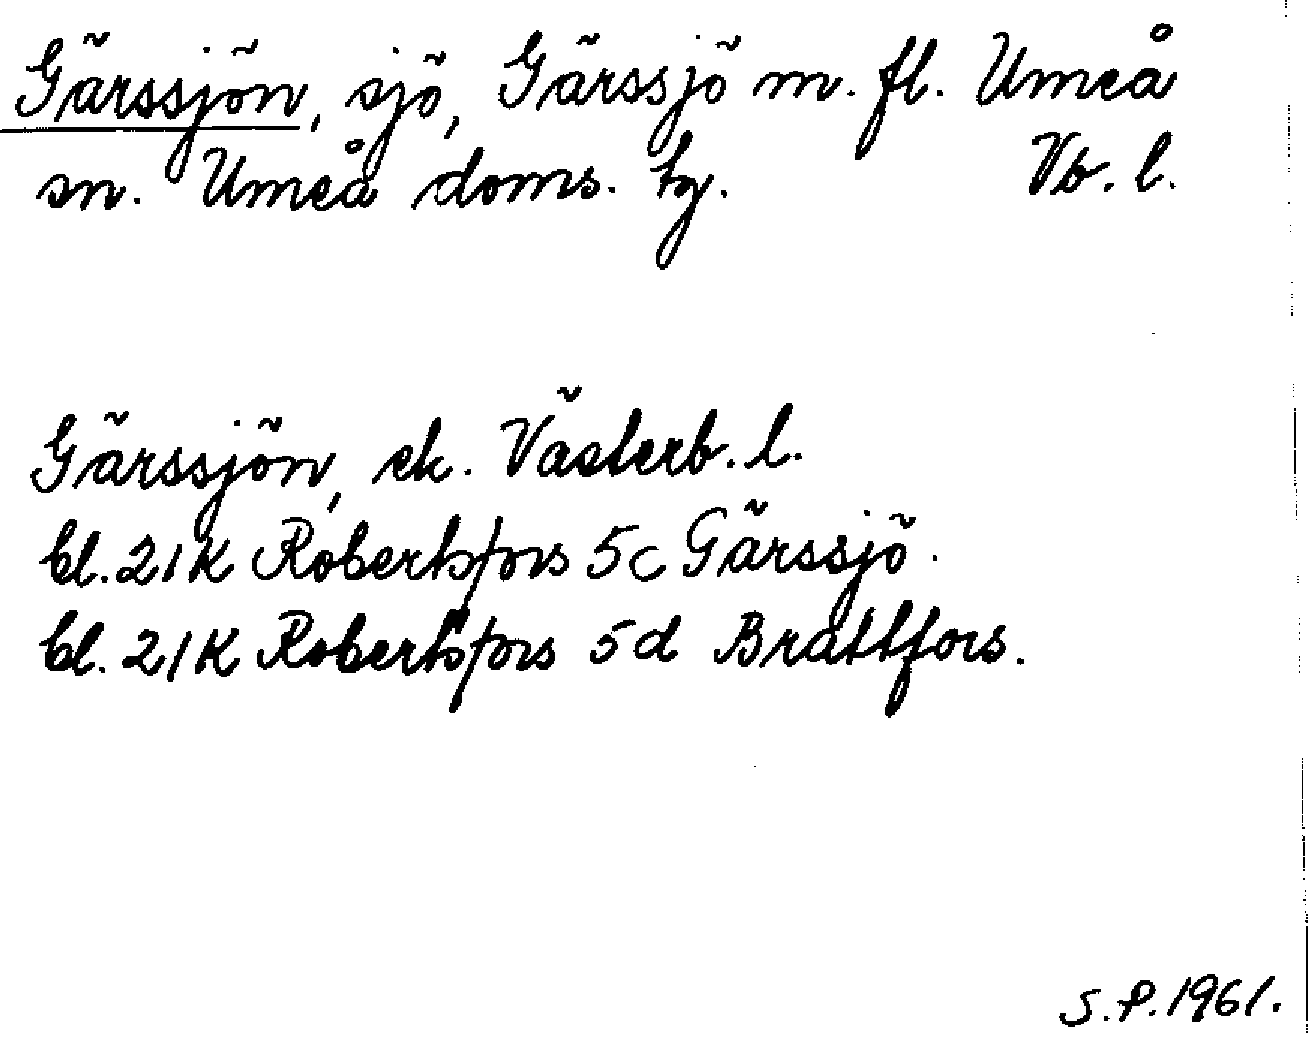 Gärssjön, sjö, Gärssjö m. fl. Umeå
sn. Umeå doms. tg. Vb. l.
Gärssjön, ek. Västerb. l.
bl. 21K Robertsfors 5c Gärssjö.
bl. 21K Robertsfors 5d Brattfors.
S.P. 1961.